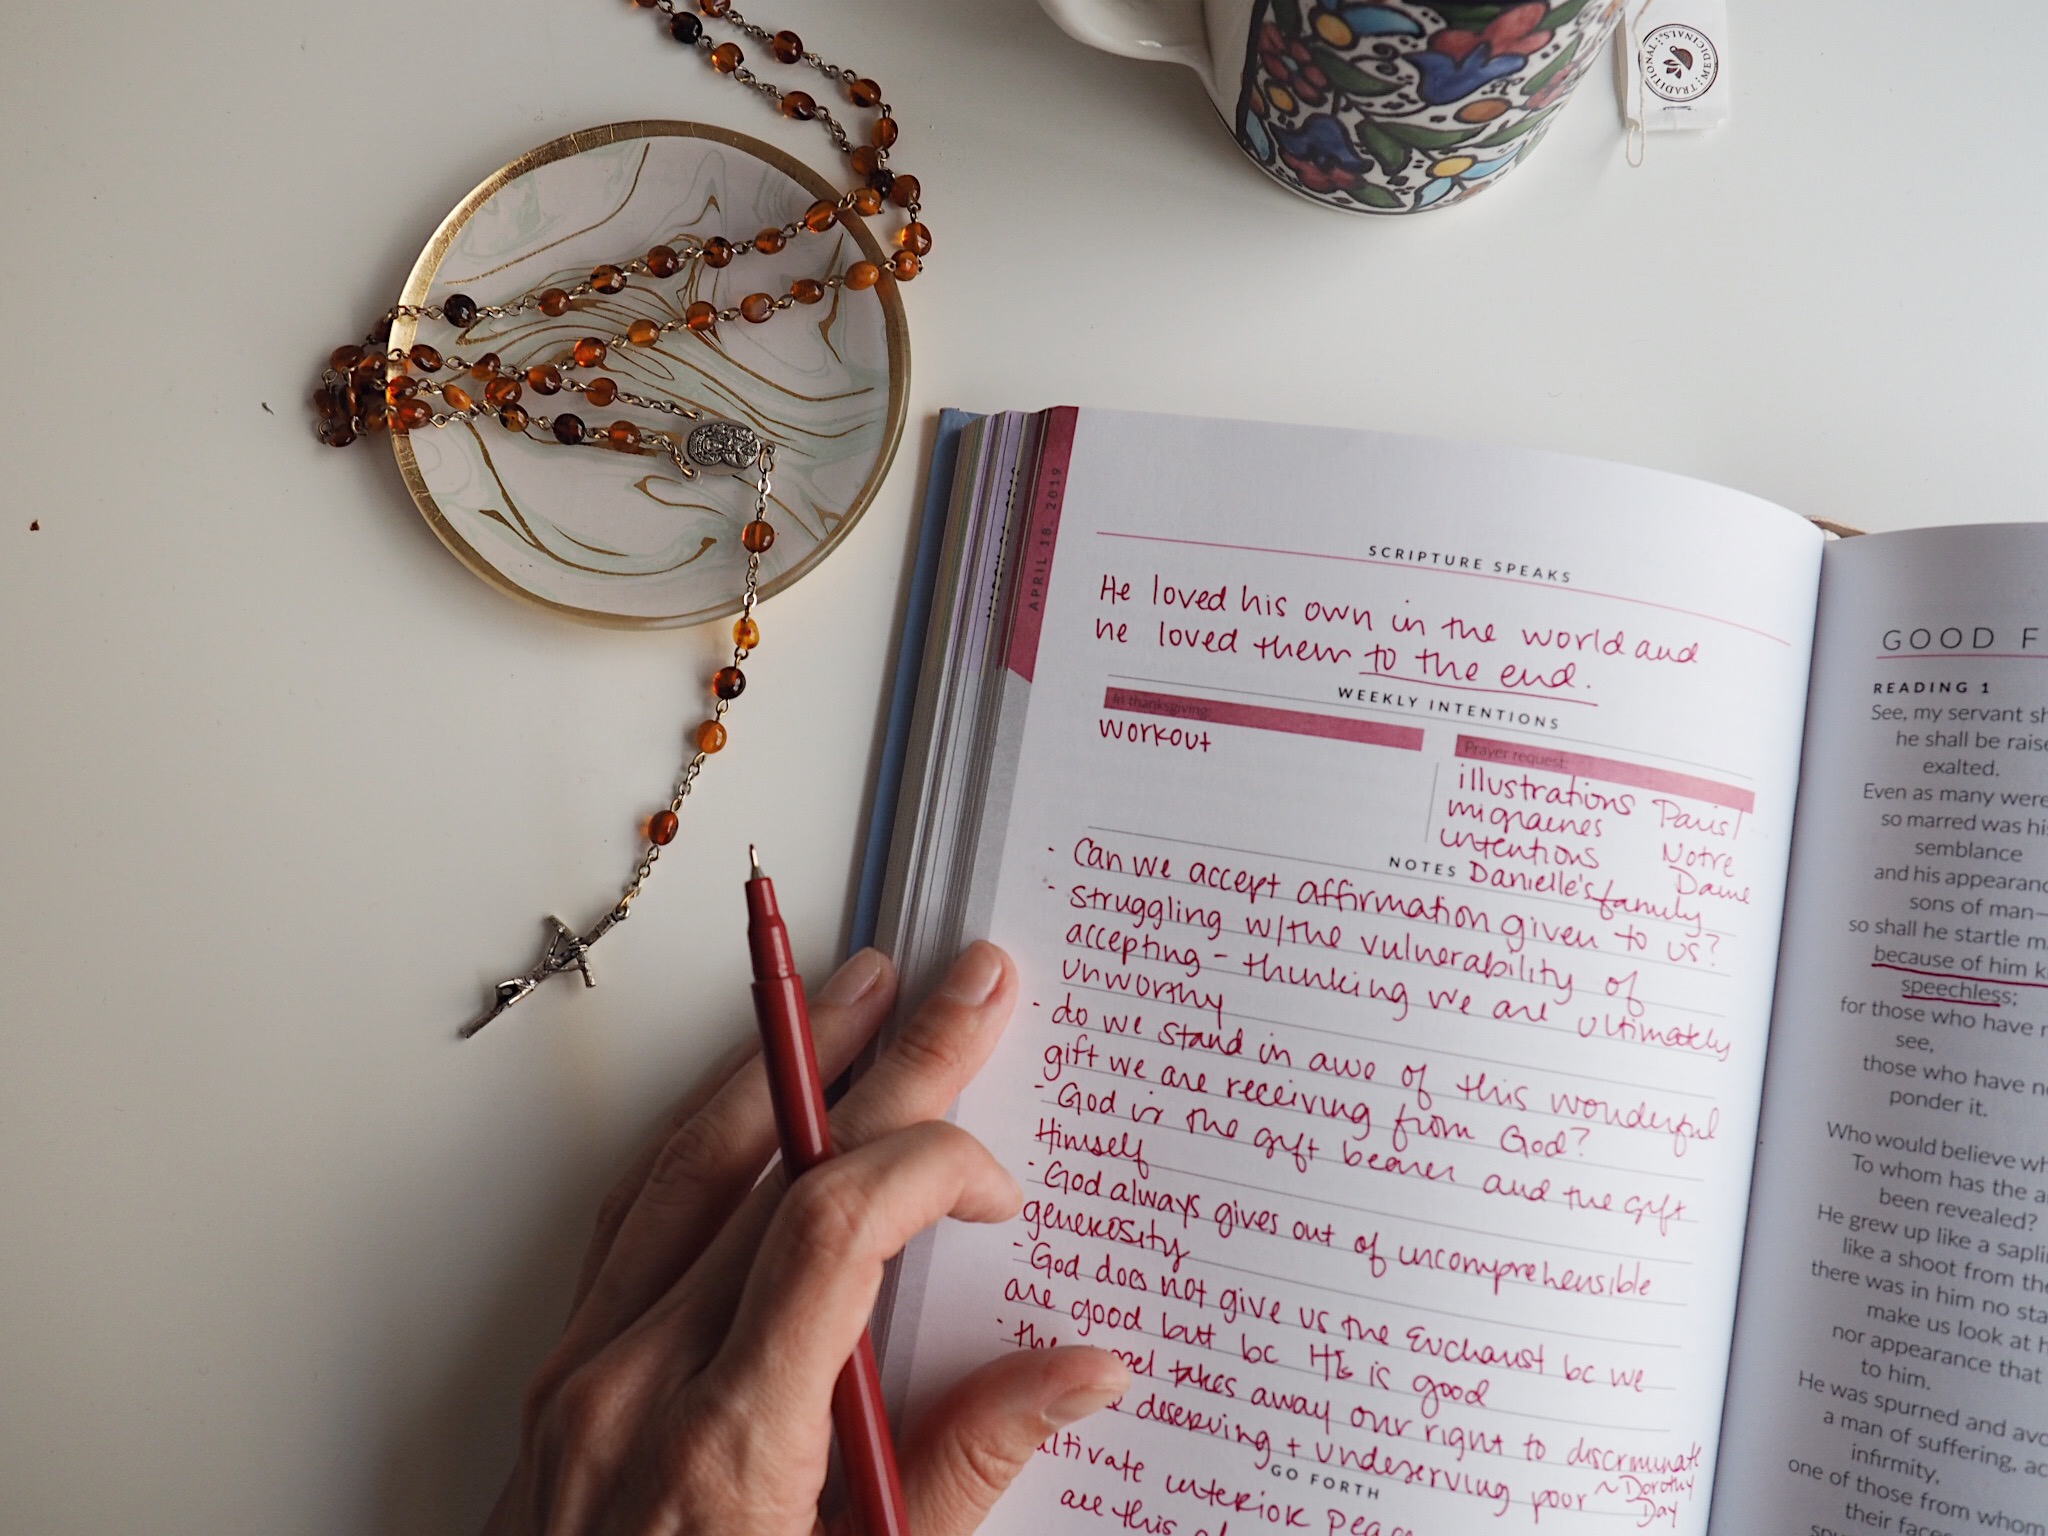 TRADITIONAL MEDICINALS
APRIL 18, 2019
SCRIPTURE SPEAKS
He loved his own in the world and
he loved them to the end.
WEEKLY INTENTIONS
In thanksgiving:
workout
Prayer request:
illustrations Paris/
migraines
intentions Notre
Danielle's family Dame
NOTES
- Can we accept affirmation given to us?
- struggling w/the vulnerability of
accepting - thinking we are ultimately
unworthy
- do we stand in awe of this wonderful
gift we are receiving from God?
- God is the gift bearer and the gift
Himself
- God always gives out of uncomprehensible
generosity
- God does not give us the Eucharist bc we
are good but bc HE is good
- the takes away our right to discriminate
deserving + undeserving poor ~Dorothy
Day
GO FORTH
interior
are this
GOOD F
READING 1
See, my servant sh
he shall be raise
exalted.
Even as many were
so marred was his
semblance
and his appearanc
sons of man—
so shall he startle m
because of him k
speechless;
for those who have n
see,
those who have no
ponder it.
Who would believe wh
To whom has the a
been revealed?
He grew up like a saplin
like a shoot from the
there was in him no sta
make us look at h
nor appearance that
to him.
He was spurned and avo
a man of suffering, ac
infirmity,
one of those from whom
their face